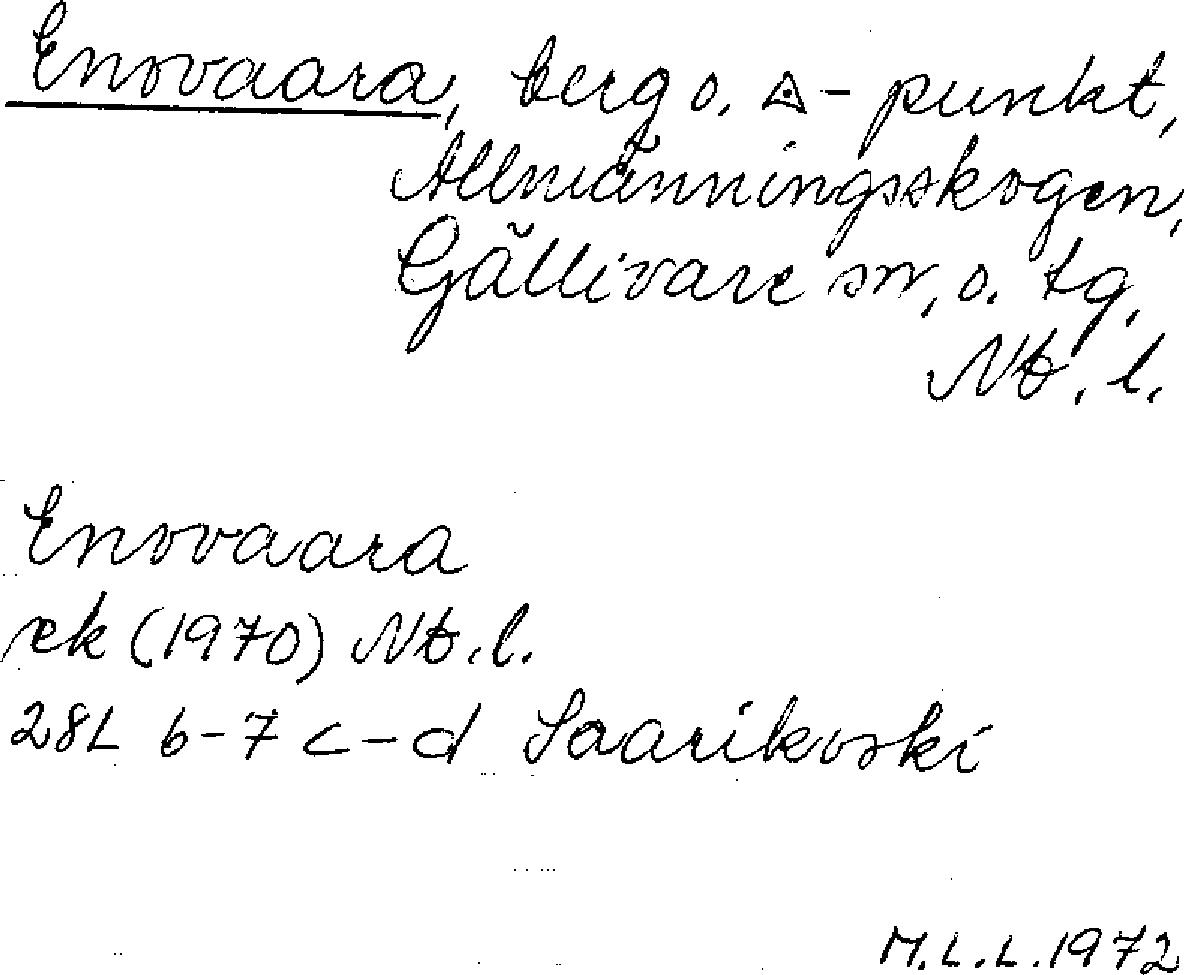 Enovaara, berg o. ◬-punkt,
Allmänningsskogen,
Gällivare sn, o. tg,
Nb. l.
Enovaara
ek (1970) Nb. l.
28L 6-7 c-d Saarikoski
M.L.L. 1972